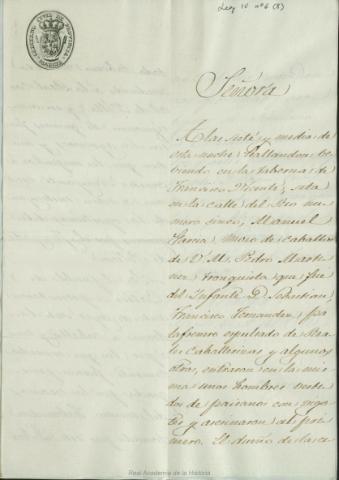 Leg 10 nº 4 (8)
Señora
A las siete y media de
esta noche, hallandose be
biendo en la taberna de
Francisco Vicente, sita
en la calle del Rio nu
mero cinco, Manuel
Garcia, mozo de caballos
de V. M. Pedro Marti
nez tronquista que fue
del Infante D. Sebastian,
Francisco Fernandez, pa
lafrenero espulsado de Rea
les caballerizas y algunos
otros, entraron en la mis
ma unos hombres vesti
dos de paisanos con
y asesinaron al pri
mero. El dueño de la ca
Real Academia de la Historia